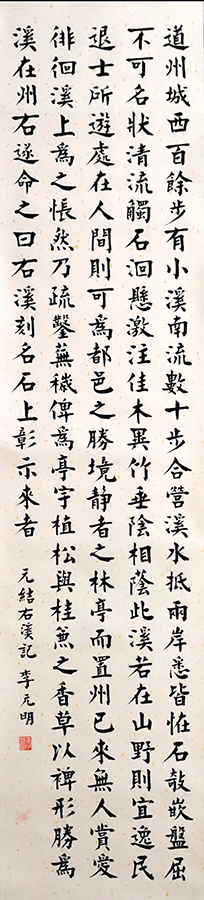 道州城西百餘步有小溪南流數十步合營溪水抵兩岸悉皆恠石敧嵌盤屈
不可名狀清流觸石洄懸激注佳木異竹垂陰相蔭此溪若在山野則宜逸民
退士所遊處在人間則可爲都邑之勝境静者之林亭而置州已來無人賞愛
徘徊溪上爲之悵然乃疏鑿蕪穢俾爲亭宇植松與桂兼之香草以裨形勝爲
溪在州右遂命之曰右溪刻名石上彰示來者
元結右溪記 李元明